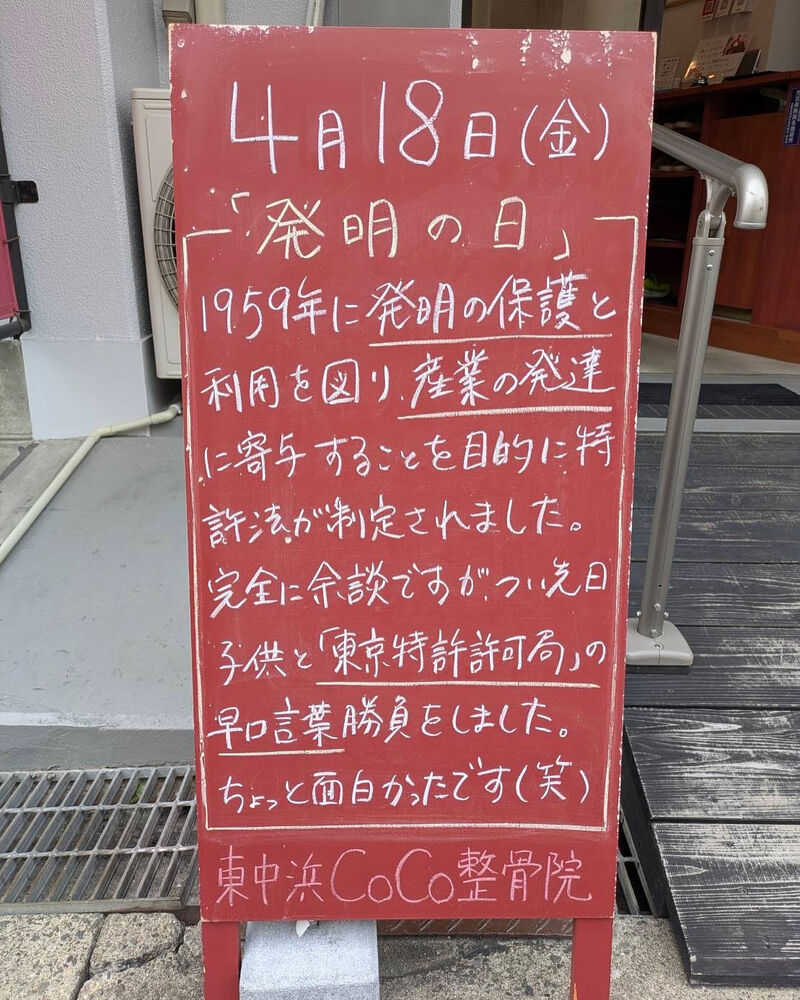 4月18日(金)
「発明の日」
1959年に発明の保護と
利用を図り、産業の発達
に寄与することを目的に特
許法が制定されました。
完全に余談ですが、つい先日
子供と「東京特許許可局」の
早口言葉勝負をしました。
ちょっと面白かったです(笑)
東中浜CoCo整骨院